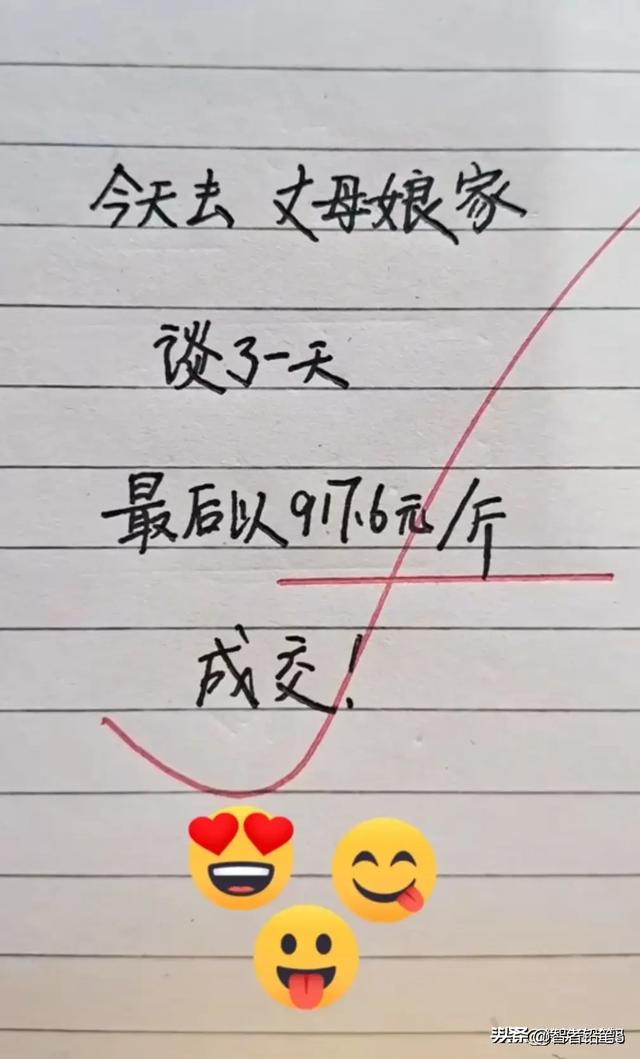 今天去 丈母娘家
谈了一天
最后以917.6元/斤
成交!
头条 @智者铅笔